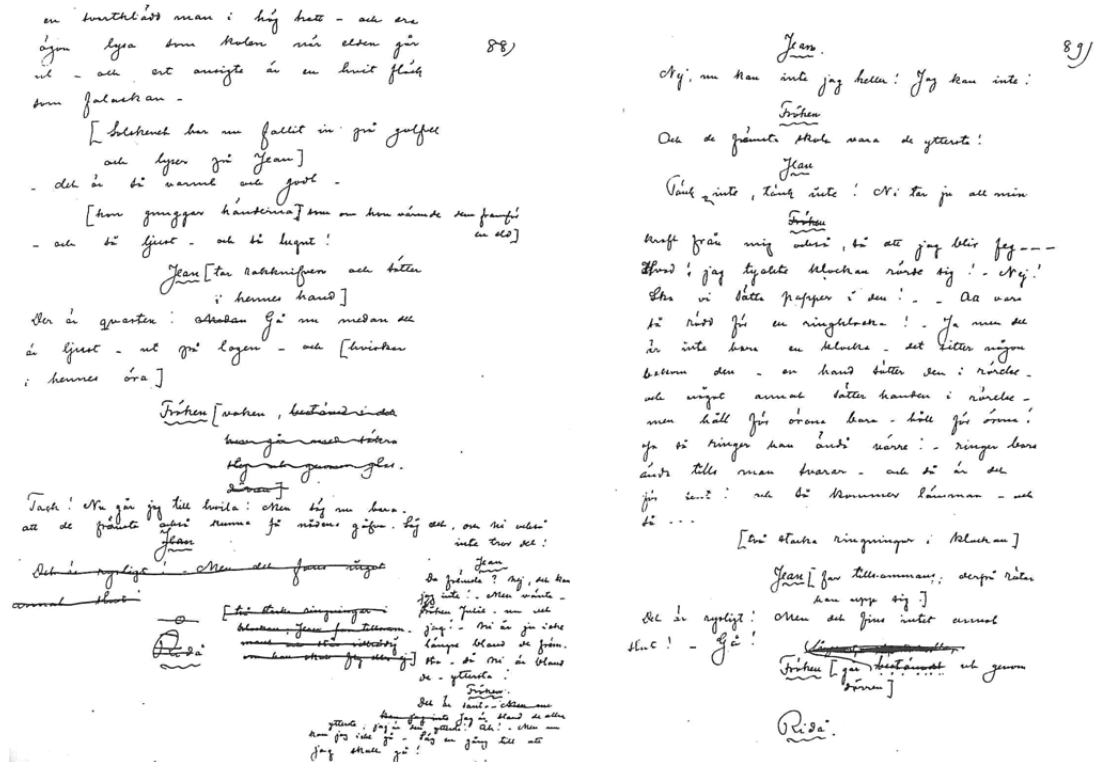 en svartklädd man i hög hatt - och era
ögon lysa som kolen när elden går
ut - och ert ansigte är en hvit fläck
som falaskan -
88)
[Solskenet har nu fallit in på golfvet
och lyser på Jean]
- det är så varmt och godt -
[hon gnuggar händerna] som om hon värmde dem framför
en eld]
- och så ljust - och så lugnt!
Jean [tar rakknifven och sätter
i hennes hand]
Der är qvasten! Gå nu medan det
är ljust - ut på logen - och [hviskar
i hennes öra]
Fröken [vaken, bestämd i det
hon går med säkra
steg ut genom glas-
dörren]
Tack! Nu går jag till hvila! Men säg nu bara -
att de främsta också kunna få nådens gåfva. Säg det, om ni också
inte tror det!
Jean
Det är rysligt! - Men det fins något
annat slut!
[två starka ringningar i
klockan, Jean far tillsam-
Ridå
Jean
De främsta? Nej, det kan
jag inte! - Men vänta -
Fröken Julie - nu vet
jag! - Ni är ju icke
längre bland de främ-
sta - då ni är bland
de - yttersta!
Fröken.
Det är sant. - Men nu
kan jag inte Jag är bland de allra
yttersta; jag är den yttersta! Ah! - Men nu
kan jag icke gå - Säg en gång till att
jag skall gå!
89)
Jean.
Nej, nu kan inte jag heller! Jag kan inte!
Fröken
Och de främsta skola vara de yttersta!
Jean
Tänk inte, tänk inte! Ni tar ju all min
Fröken
kraft från mig också, så att jag blir feg - - -
Hvad! jag tyckte klockan rörde sig! - Nej!
Ska vi sätta papper i den! - - Att vara
så rädd för en ringklocka! - Ja men det
är inte bara en klocka - det sitter någon
bakom den - en hand sätter den i rörelse -
och något annat sätter handen i rörelse -
men håll för örona bara - håll för örona!
Ja så ringer han ändå värre! - ringer bara
ända tills man svarar - och då är det
för sent! och så kommer länsman - och
så ...
[två starka ringningar i klockan]
Jean [far tillsammans; derpå rätar
han upp sig]
Det är rysligt! Men det fins intet annat
slut! - Gå!
Fröken [går bestämdt ut genom
dörren]
Ridå.